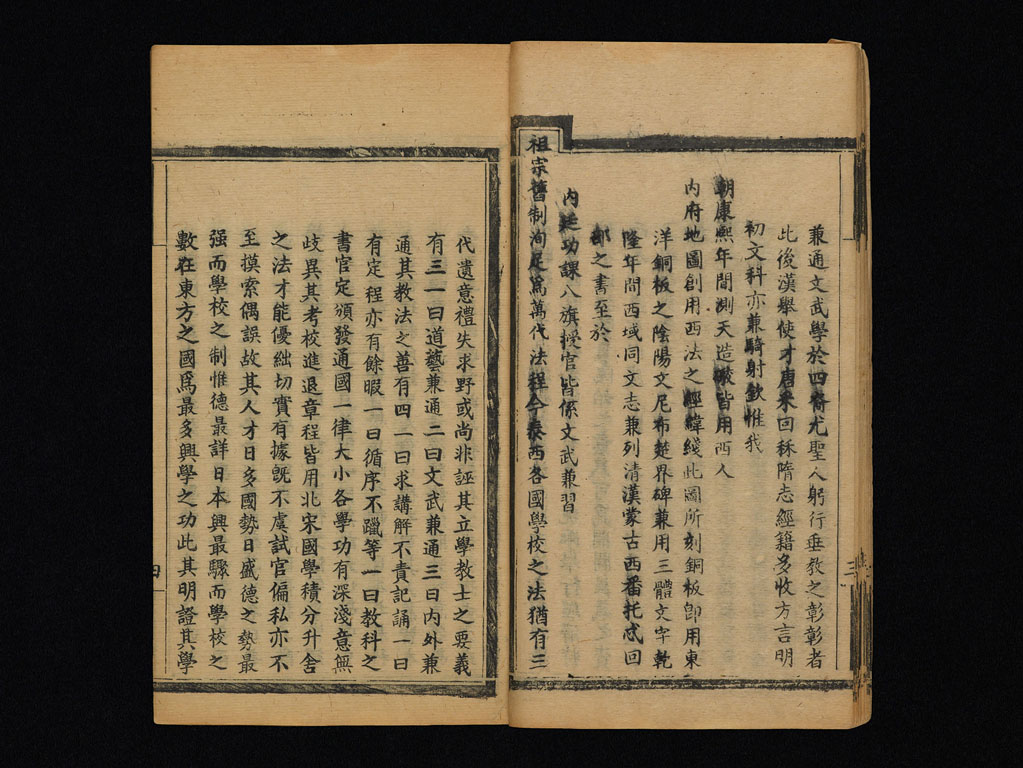 兼通文武學於四裔尤聖人躬行垂敎之彰彰者
此後漢舉使才唐來回秝隋志經籍多收方言明
初文科亦兼騎射欽惟我
朝康熙年間測天造礮皆用西人
內府地圖創用西法之經緯綫此圖所刻銅板卽用東
洋銅板之陰陽文尼布楚界碑兼用三體文字乾
隆年間西域同文志兼列清漢蒙古西番托忒回
部之書至於
內廷功課八旗授官皆係文武兼習
祖宗舊制洵足爲萬代法程今泰西各國學校之法猶有三
代遺意禮失求野或尚非誣其立學敎士之要義
有三一曰道藝兼通二曰文武兼通三曰內外兼
通其敎法之善有四一曰求講解不責記誦一曰
有定程亦有餘暇一曰循序不躐等一曰敎科之
書官定頒發通國一律大小各學功有深淺意無
歧異其考校進退章程皆用北宋國學積分升舍
之法才能優絀切實有據旣不虞試官偏私亦不
至摸索偶誤故其人才日多國勢日盛德之勢最
强而學校之制惟德最詳日本興最驟而學校之
數在東方之國爲最多興學之功此其明證其學
三
四